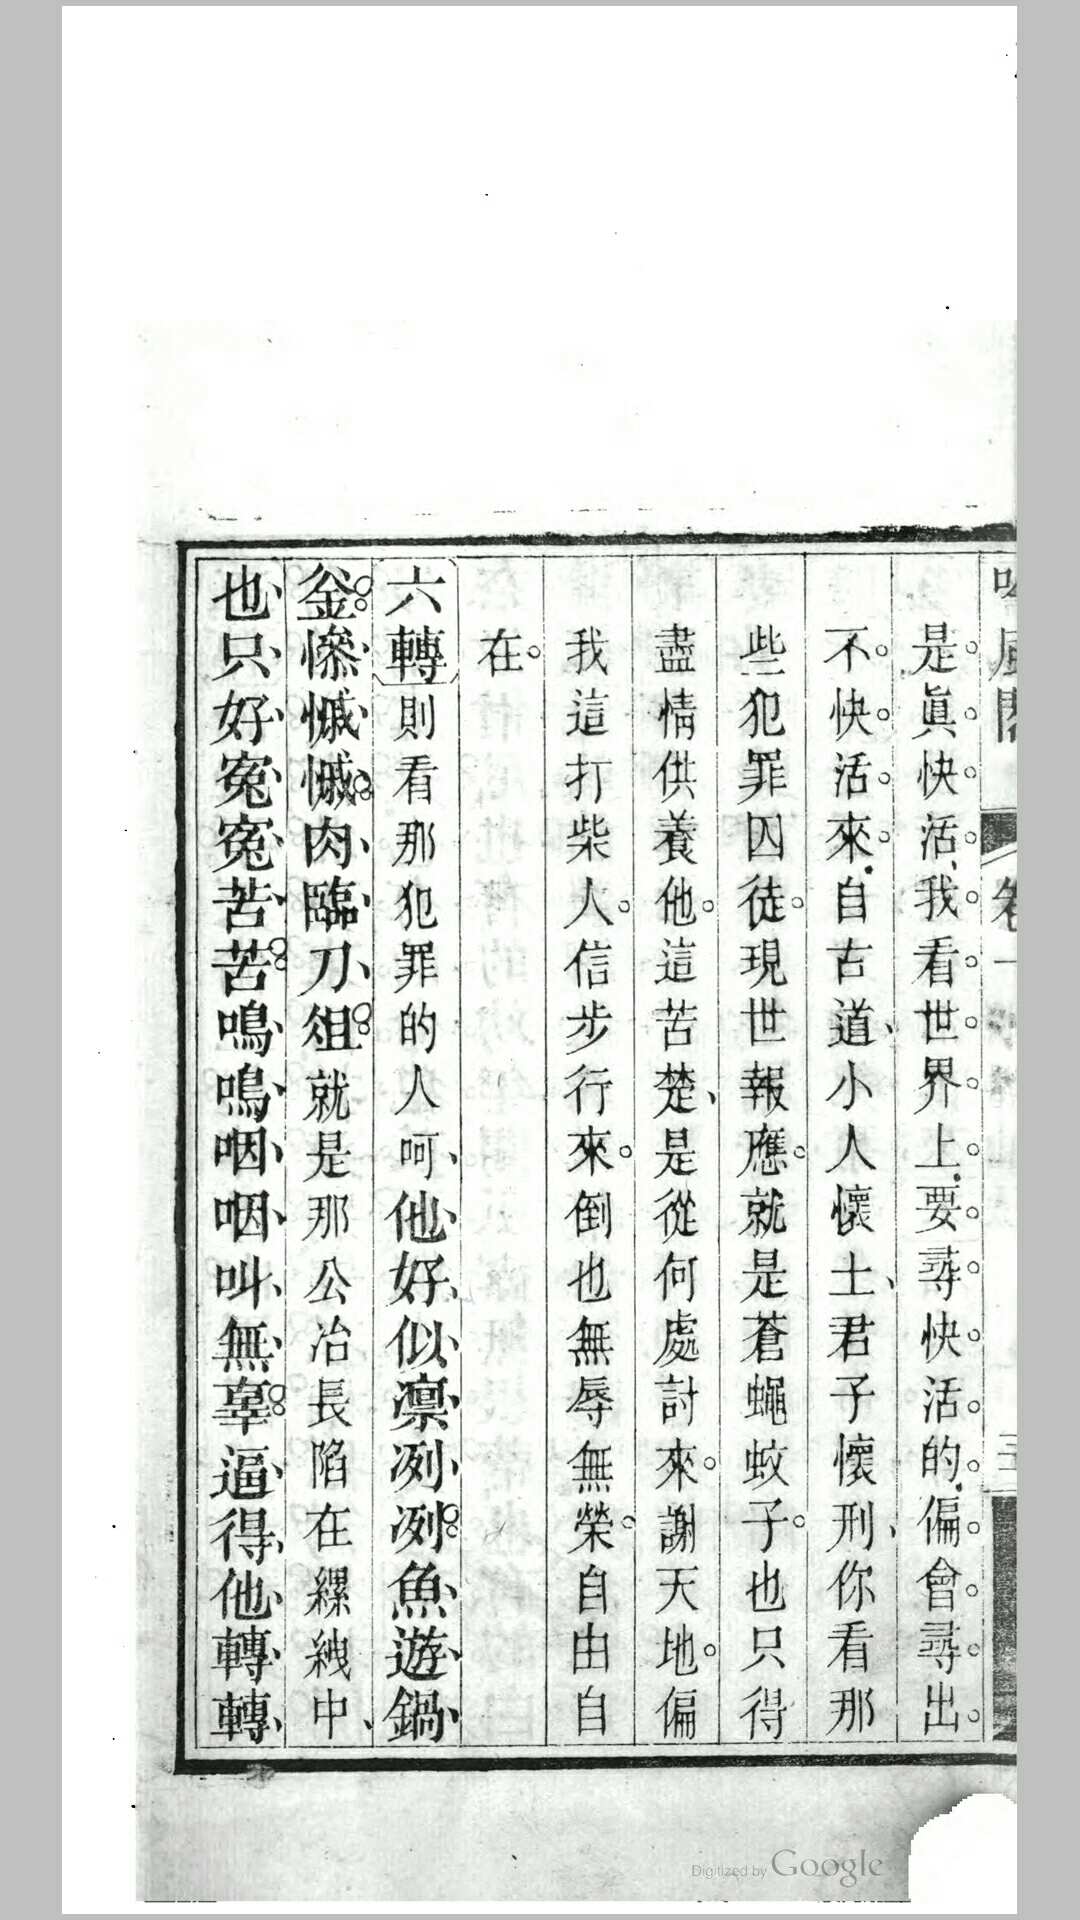 是眞快活我看世界上要尋快活的偏會尋出
不快活來自古道小人懷土君子懷刑你看那
些犯罪囚徒現世報應就是蒼蠅蚊子也只得
盡情供養他這苦楚是從何處討來謝天地偏
我這打柴人信步行來倒也無辱無榮自由自
在
六轉則看那犯罪的人呵他好似凛冽冽魚遊鍋
釜慘慽慽肉臨刀俎就是那公冶長陷在縲絏中
也只好寃寃苦苦鳴鳴咽咽叫無辜逼得他轉轉
Digitized by Google